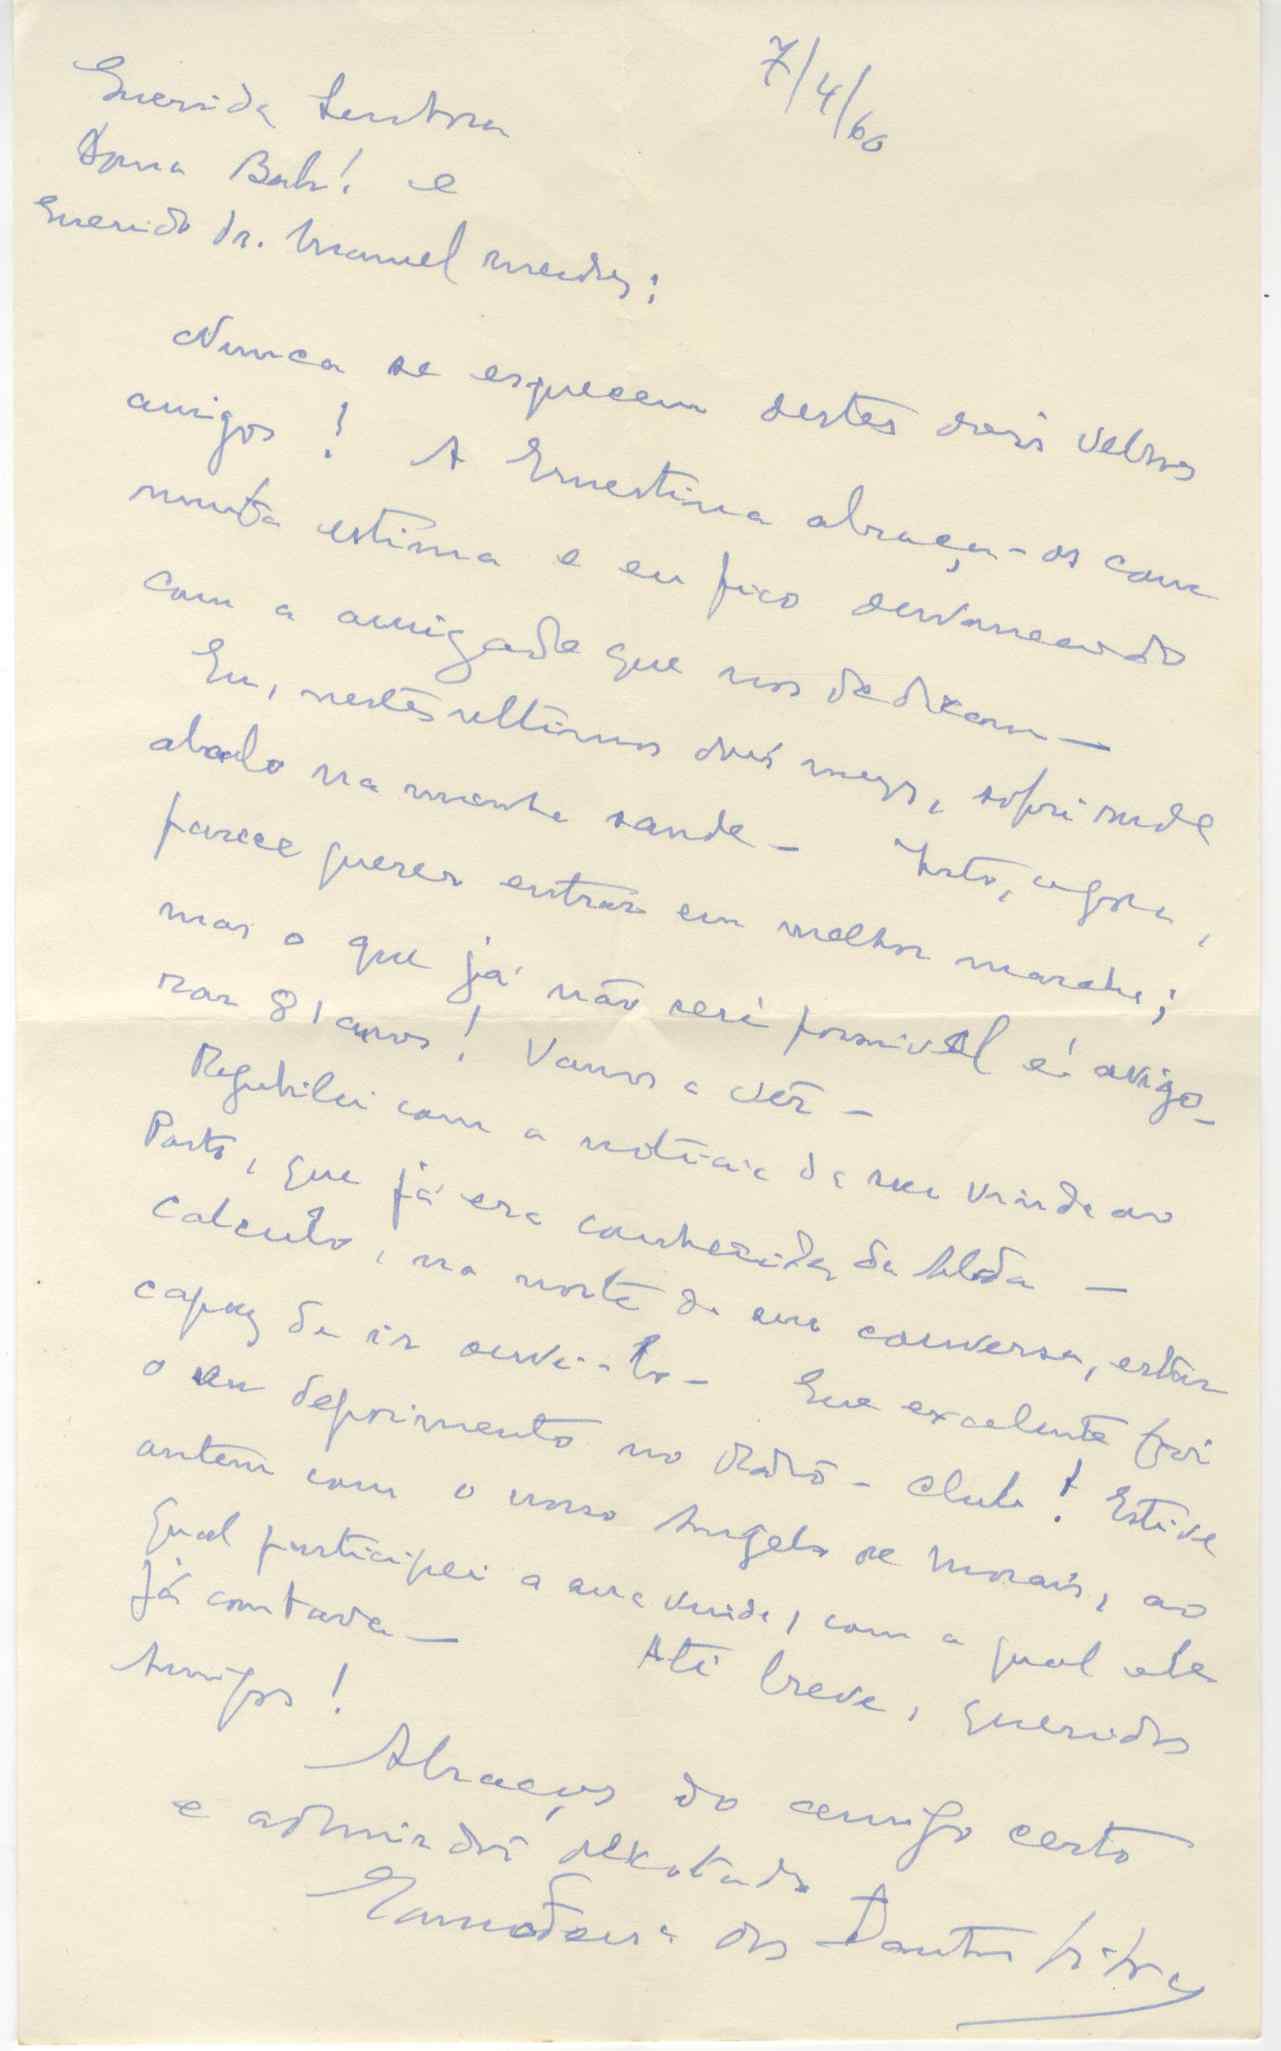 7/4/60
Querida Senhora
Dona Bah! e
Querido Dr. Manuel Mendes:
Nunca se esquecem destes dois velhos
amigos! A Ernestina abraça-os com
muita estima e eu fico desvanecido
com a amizade que nos dedicam —
Eu, nestes ultimos dois mezes, sofri rude
abalo na minha saude — Isto, agora,
parece querer entrar em melhor marcha;
mas o que já não será possivel é avigo-
rar 81 anos! Vamos a vêr —
Regubilei com a noticia da sua vinda ao
Porto, que já era conhecida da
Calculo, na noite da sua conversa, estar
capaz de ir ouvi-lo — Que excelente foi
o seu depoimento no Rádio-Clube! Estive
ontem com o nosso Angelo de Morais, ao
qual participei a sua vinda, com a qual ele
já contava — Até breve, queridos
Amigos!
Abraços do amigo certo
e admirador
dos Santos Silva